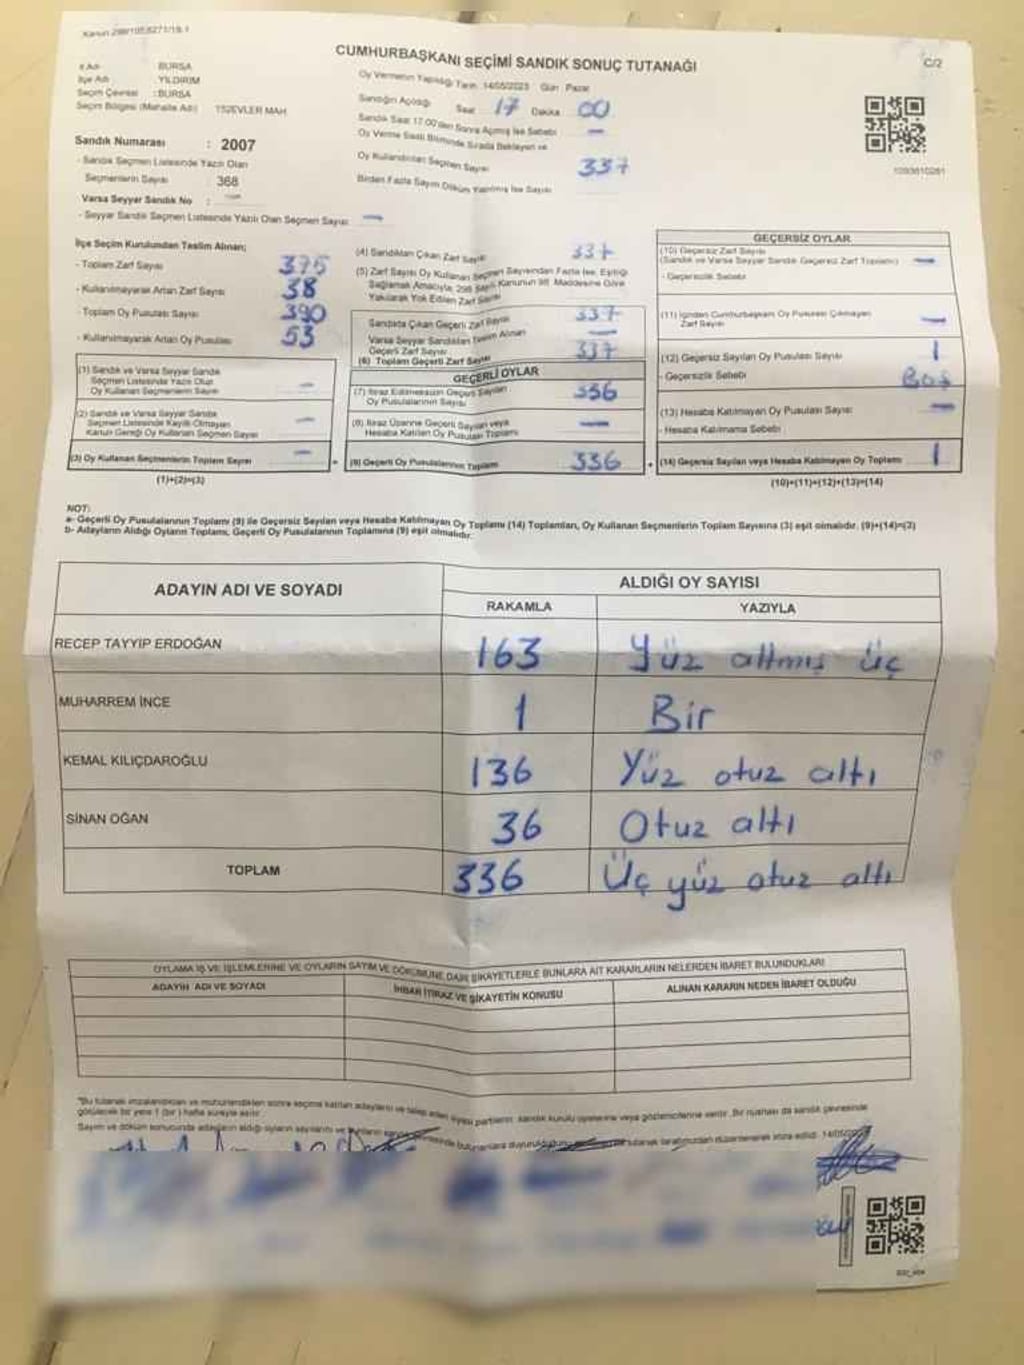 Kanun 298/105,6271/19-1
CUMHURBAŞKANI SEÇİMİ SANDIK SONUÇ TUTANAĞI
C/2
İl Adı : BURSA
İlçe Adı : YILDIRIM
Seçim Çevresi : BURSA
Seçim Bölgesi (Mahalle Adı) 152EVLER MAH
Sandık Numarası : 2007
- Sandık Seçmen Listesinde Yazılı Olan
Seçmenlerin Sayısı : 368
Varsa Seyyar Sandık No :
- Seyyar Sandık Seçmen Listesinde Yazılı Olan Seçmen Sayısı —
Oy Vermenin Yapıldığı Tarih: 14/05/2023 Gün: Pazar
Sandığın Açıldığı Saat 17 Dakika 00
Sandık Saat 17.00'den Sonra Açılmış İse Sebebi —
Oy Verme Saati Bitiminde Sırada Bekleyen ve
Oy Kullandırılan Seçmen Sayısı 337
Birden Fazla Sayım Döküm Yapılmış İse Sayısı
1093610281
İlçe Seçim Kurulundan Teslim Alınan;
- Toplam Zarf Sayısı 375
- Kullanılmayarak Artan Zarf Sayısı 38
- Toplam Oy Pusulası Sayısı 390
- Kullanılmayarak Artan Oy Pusulası 53
(1) Sandık ve Varsa Seyyar Sandık
Seçmen Listesinde Yazılı Olup
Oy Kullanan Seçmenlerin Sayısı —
(2) Sandık ve Varsa Seyyar Sandık
Seçmen Listesinde Kayıtlı Olmayan
Kanun Gereği Oy Kullanan Seçmen Sayısı —
(3) Oy Kullanan Seçmenlerin Toplam Sayısı —
(1)+(2)=(3)
(4) Sandıktan Çıkan Zarf Sayısı 337
(5) Zarf Sayısı Oy Kullanan Seçmen Sayısından Fazla İse, Eşitliği
Sağlamak Amacıyla, 298 Sayılı Kanunun 98. Maddesine Göre
Yakılarak Yok Edilen Zarf Sayısı
Sandıkta Çıkan Geçerli Zarf Sayısı 337
Varsa Seyyar Sandıktan Teslim Alınan
Geçerli Zarf Sayısı —
(6) Toplam Geçerli Zarf Sayısı 337
GEÇERLİ OYLAR
(7) İtiraz Edilmeksizin Geçerli Sayılan
Oy Pusulalarının Sayısı 336
(8) İtiraz Üzerine Geçerli Sayılan veya
Hesaba Katılan Oy Pusulası Toplamı —
(9) Geçerli Oy Pusulalarının Toplamı 336
GEÇERSİZ OYLAR
(10) Geçersiz Zarf Sayısı
(Sandık ve Varsa Seyyar Sandık Geçersiz Zarf Toplamı) —
- Geçersizlik Sebebi
(11) İçinden Cumhurbaşkanı Oy Pusulası Çıkmayan
Zarf Sayısı —
(12) Geçersiz Sayılan Oy Pusulası Sayısı 1
- Geçersizlik Sebebi Boş
(13) Hesaba Katılmayan Oy Pusulası Sayısı —
- Hesaba Katılmama Sebebi
(14) Geçersiz Sayılan veya Hesaba Katılmayan Oy Toplamı 1
(10)+(11)+(12)+(13)=(14)
NOT:
a- Geçerli Oy Pusulalarının Toplamı (9) ile Geçersiz Sayılan veya Hesaba Katılmayan Oy Toplamı (14) Toplamları, Oy Kullanan Seçmenlerin Toplam Sayısına (3) eşit olmalıdır. (9)+(14)=(3)
b- Adayların Aldığı Oyların Toplamı, Geçerli Oy Pusulalarının Toplamına (9) eşit olmalıdır.
ADAYIN ADI VE SOYADI
ALDIĞI OY SAYISI
RAKAMLA YAZIYLA
RECEP TAYYIP ERDOĞAN 163 Yüz altmış üç
MUHARREM İNCE 1 Bir
KEMAL KILIÇDAROĞLU 136 Yüz otuz altı
SİNAN OĞAN 36 Otuz altı
TOPLAM 336 Üç yüz otuz altı
OYLAMA İŞ VE İŞLEMLERİNE VE OYLARIN SAYIM VE DÖKÜMÜNE DAİR ŞİKAYETLERLE BUNLARA AİT KARARLARIN NELERDEN İBARET BULUNDUKLARI
ADAYIN ADI VE SOYADI
İHBAR İTİRAZ VE ŞİKAYETİN KONUSU
ALINAN KARARIN NEDEN İBARET OLDUĞU
"Bu tutanak imzalandıktan ve mühürlendikten sonra seçime katılan adayların ve talep eden siyasi partilerin sandık kurulu üyelerine veya gözlemcilerine verilir. Bir nüshası da sandık çevresinde
görülecek bir yere 1 (bir) hafta süreyle asılır.
Sayım ve döküm sonucunda adayların aldığı oyların sayılarını ve
tutanak tarafımızdan düzenlenerek imza edildi. 14/05/